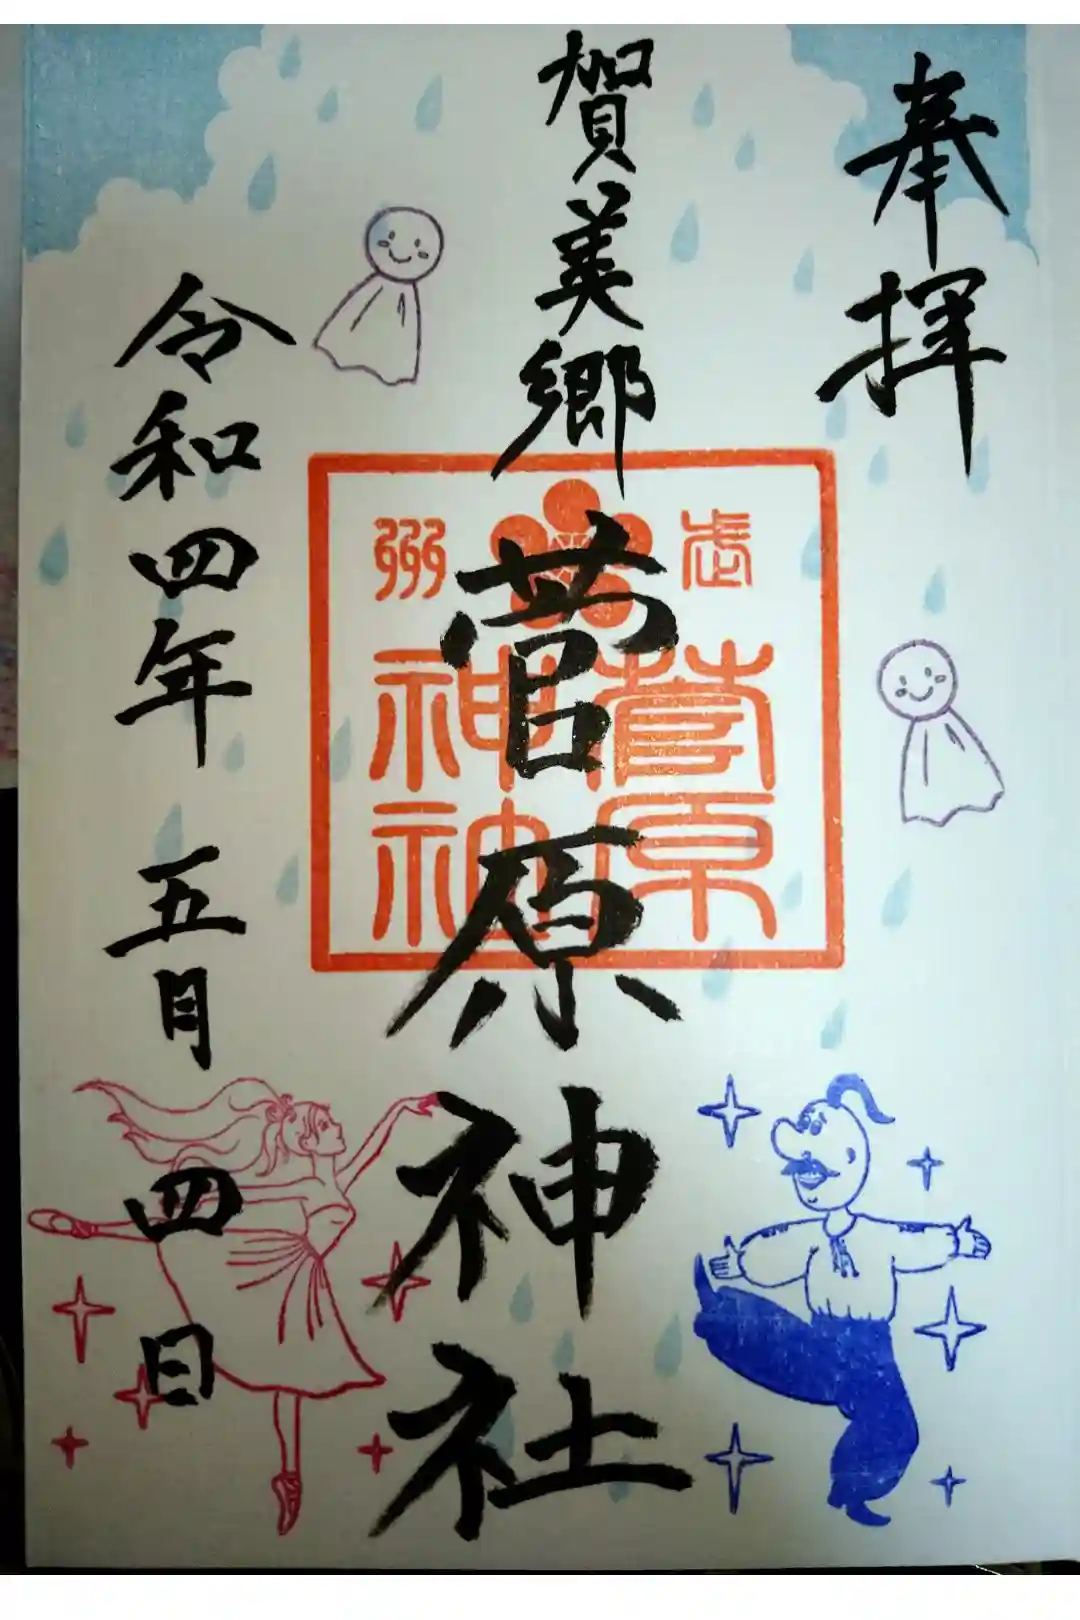 奉拝
賀美郷
菅原神社
武州
菅原
神社
令和四年 五月四日